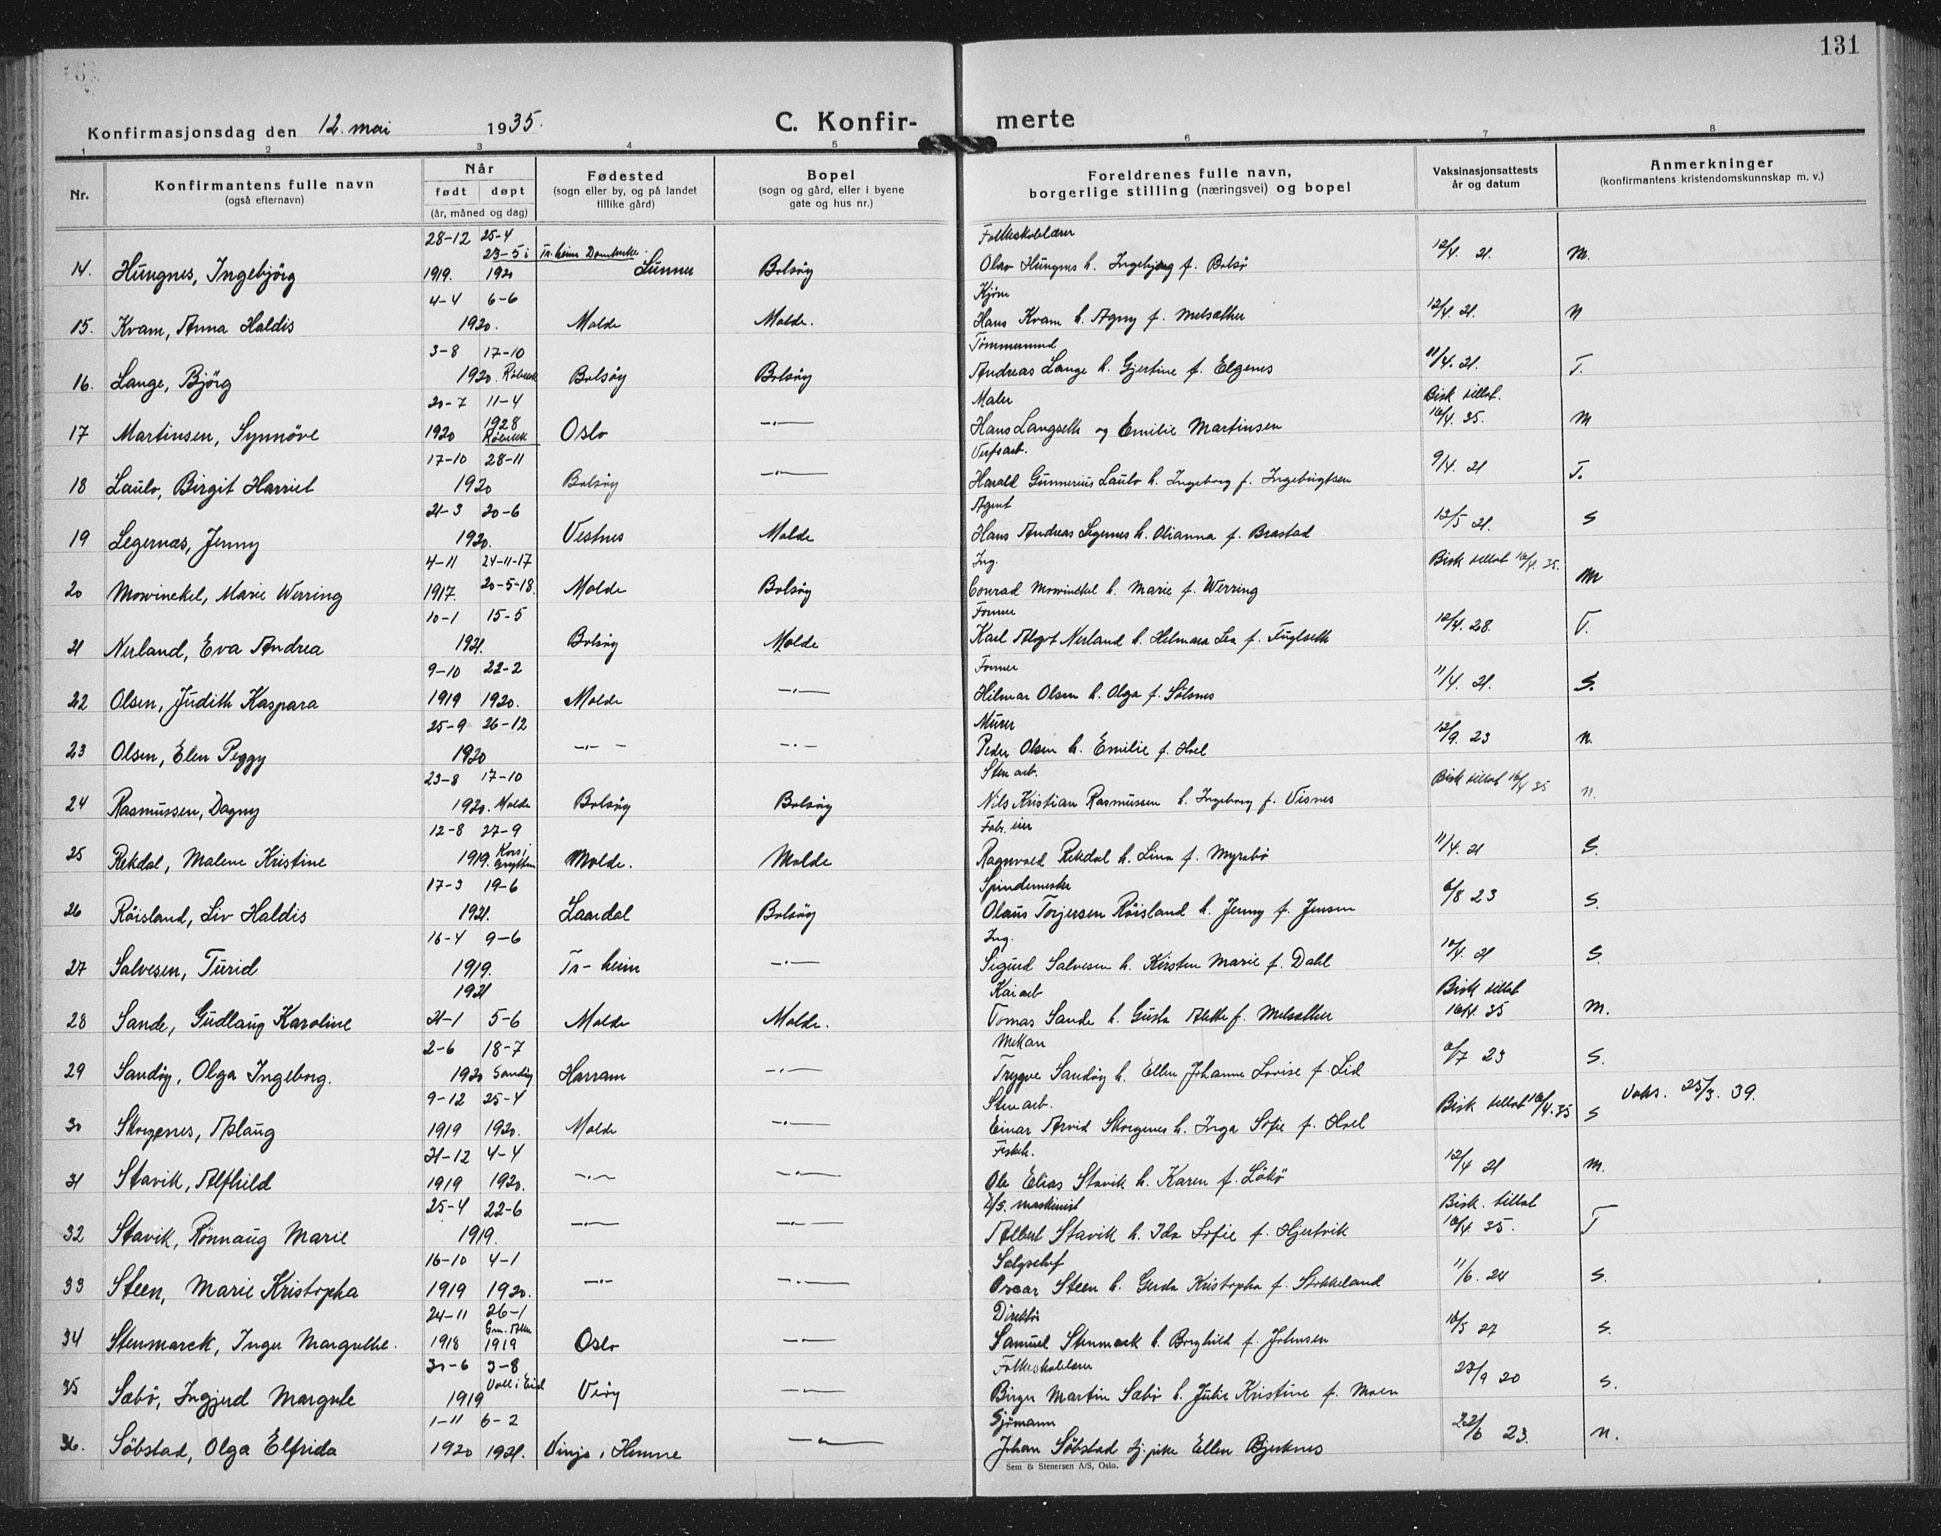 131
Konfirmasjonsdag den 12. mai 1935.
C. Konfir- merte
1 2 3 4 5 6 7 8
Nr.
Konfirmantens fulle navn
(også efternavn)
Når
født døpt
(år, måned og dag)
Fødested
(sogn eller by, og på landet
tillike gård)
Bopel
(sogn og gård, eller i byene
gate og hus nr.)
Foreldrenes fulle navn,
borgerlige stilling (næringsvei) og bopel
Vaksinasjonsattests
år og datum
Anmerkninger
(konfirmantens kristendomskunnskap m. v.)
28-12 25-4 Folkeskolelærer
23-5 i Tr.heim Domkirke
14. Hungnes, Ingebjørg 1919. 1920 Sunnes Bolsøy Olav Hungnes h. Ingebjørg f. Bolsø 12/4. 21. M.
4-4 6-6
15. Kvam, Anna Haldis 1920. Molde Molde. Hans Kvam h. Agny f. Melsæther 12/4. 21. N
3-8 17-10 Tømmermand
16. Lange, Bjørg 1920. Røbekk Bolsøy Bolsøy Andreas Lange h. Gjertine f. Elgenes 11/4. 21. T.
20-7 11-4 Maler Bisk tillat.
17 Martinsen, Synnøve 1920 1928 Røbekk Oslo —·— Hans Langseth og Emilie Martinsen 16/4. 35. M
17-10 28-11 Verftsarb.
18 Laulo, Birgit Harriet 1920 Bolsøy —·— Harald Gunnerius Laulo h. Ingeborg f. Ingebrigtsen 9/4. 21 T.
21-3 20-6 Agent
19 Legernæs, Jenny 1920. Vestnes Molde Hans Andreas Legernes h. Olianna f. Brastad 12/5 21. S
4-11 24-11-17 Ing.
20 Mowinckel, Marie Werring 1917. 20-5-18. Molde Bolsøy Conrad Mowinckel h. Marie f. Werring Bisk tillat 16/4. 35. M
10-1 15-5 Former
21 Nerland, Eva Andrea 1921. Bolsøy Molde Karl Algot Nerland h. Helmara Lea f. Fuglseth 12/4. 28. T.
9-10 22-2 Former
22 Olsen, Judith Kaspara 1919 1920. Molde —·— Hilmar Olsen h. Olga f. Sølsnes 11/4. 21. S.
25-9 26-12 Murer
23 Olsen, Elen Peggy 1920 —·— —·— Peder Olsen h. Emilie f. Hoel 12/9. 23 N.
23-8 17-10 Sten arb.
24 Rasmussen, Dagny 1920. Molde Bolsøy Bolsøy Nils Kristian Rasmussen h. Ingeborg f. Visnes Bisk tillat 16/4 35 N.
12-8 27-9 Fab. eier
25 Rekdal, Malene Kristine 1919. Kors i Grytten Molde. Molde Ragnvald Rekdal h. Lina f. Myrebø 11/4. 21 S.
17-3 19-6 Spindemester
26 Röisland, Liv Haldis 1921. Laardal Bolsøy Olaus Torjersen Röisland h. Jenny f. Jensen 6/8 23 S.
16-4 9-6 Ing.
27 Salvesen, Turid 1919. Tr-heim —·— Sigurd Salvesen h. Kirsten Marie f. Dahl 10/4. 21 S.
1921 Kai arb Bisk tillat
28 Sande, Gudlaug Karoline 21-1 5-6 Molde Molde. Tomas Sande h. Gusta Alette f. Melsæther 16/4 35 M.
2-6 18-7 Mekan
29 Sandøy, Olga Ingeborg. 1920 Sandøy Harram —·— Trygve Sandøy h. Ellen Johanne Lovise f. Lid 6/7 23 S.
9-12 25-4 Sten arb. Vaks. 25/3. 39.
30 Skorgenes, Aslaug 1919 1920. Molde —·— Einar Arvid Skorgenes h. Inga Sofie f. Hoel Bisk tillat 16/4. 35 S
21-12 4-4 Fiskeh.
31 Stavik, Alfhild 1919 1920. —·— —·— Ole Elias Stavik h. Karen f. Løkø 12/4 21 M.
25-4 22-6 D/S. maskinist Bisk. tillat
32 Stavik, Rønnaug Marie 1919. —·— —·— Albert Stavik h. Ida Sofie f. Hjertvik 16/4 35. T
16-10 4-1 Salgschef
33 Steen, Marie Kristopha 1919 1920. —·— —·— Oscar Steen h. Gerda Kristopha f. Stokkeland 11/6. 24 S.
24-11 26-1 Direktør
34 Stenmarck, Inger Margrethe. 1918 Gm. Aker 1919 Oslo —·— Samuel Stenmark h. Borghild f. Johnsen 16/5 27 S.
30-6 3-8 Folkeskolelærer
35 Sæbø, Ingjerd Margrete 1919 Voll i Eid Veøy —·— Birger Martin Sæbø h. Julie Kristine f. Moen 23/9 20 S.
1-11 6-2 Sjømann
36. Søbstad, Olga Elfrida 1920 1921. Vinje i Hemne —·— Johan Søbstad tj. pike Ellen Bjerknes 22/6 23. N.
Sem & Stenersen A/S, Oslo.